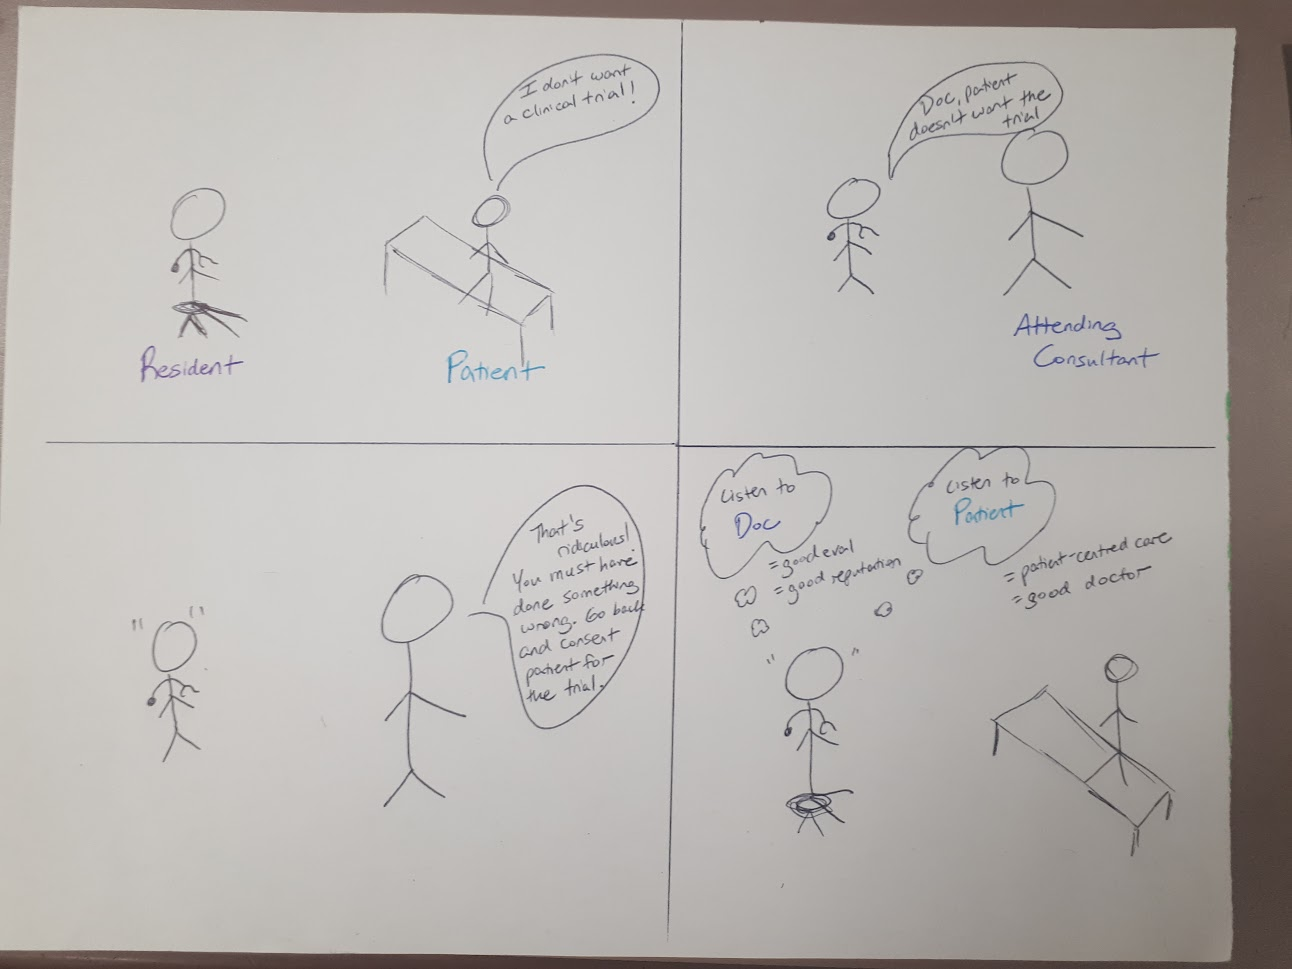 I don't want
a clinical trial!
Resident
Patient
Doc, patient
doesn't want the
trial
Attending
Consultant
That's
ridiculous!
You must have
done something
wrong. Go back
and consent
patient for
the trial.
Listen to
Doc
= good eval
= good reputation
Listen to
Patient
= patient-centred care
= good doctor